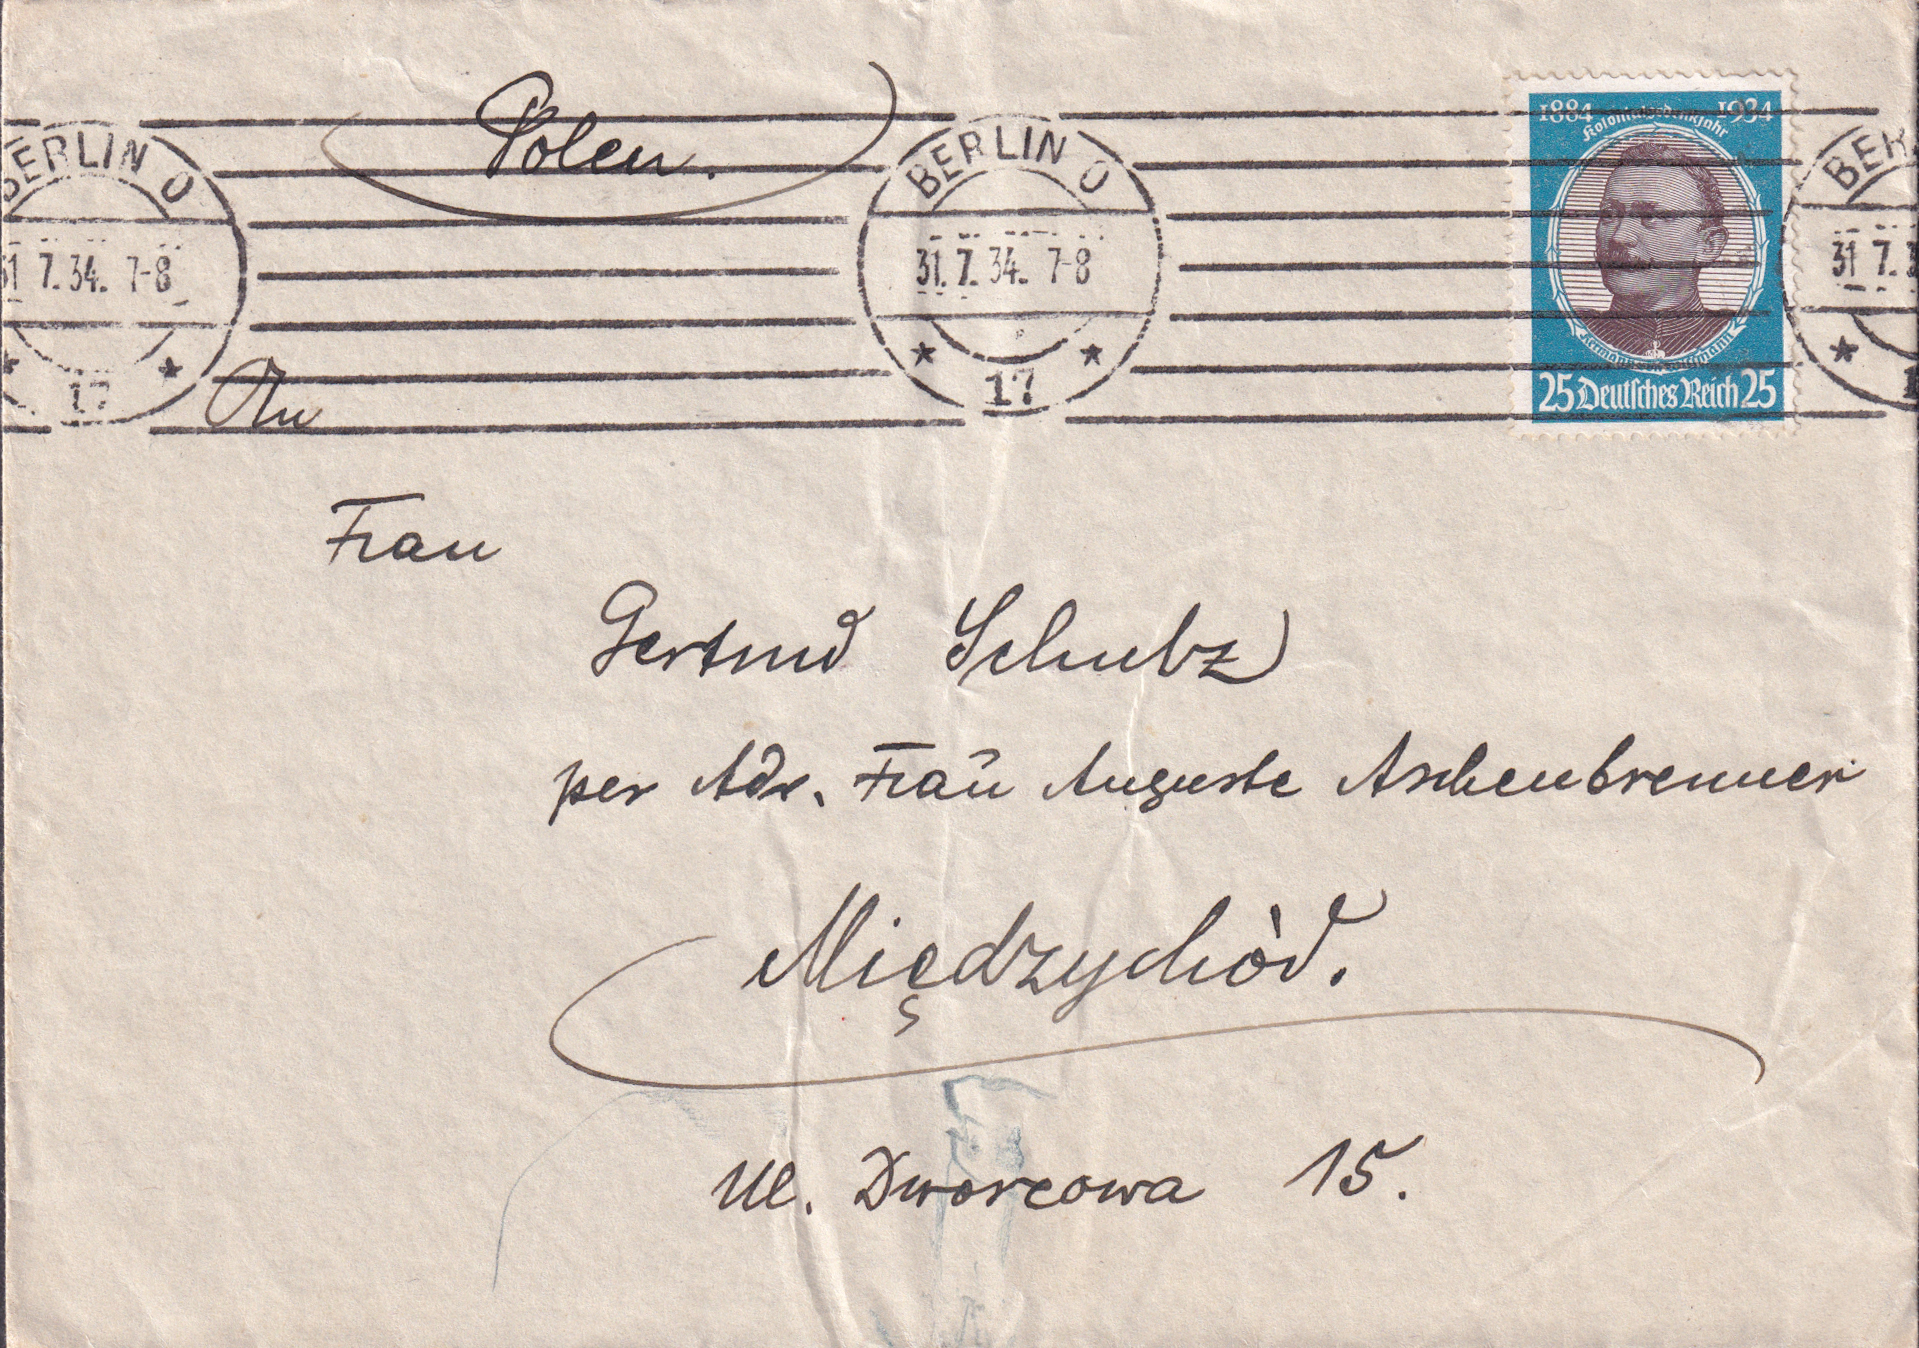 Polen.
BERLIN O
31.7.34. 7-8
17
BERLIN O
31.7.34. 7-8
17
1884 1934
Kolonialgedenkjahr
Hermann von Wissmann
25 Deutsches Reich 25
BER
31 7.3
An
Frau
Gertrud Schulz
per Adr. Frau Auguste Aschenbrenner
Międzychòd.
ul. Dworcowa 15.